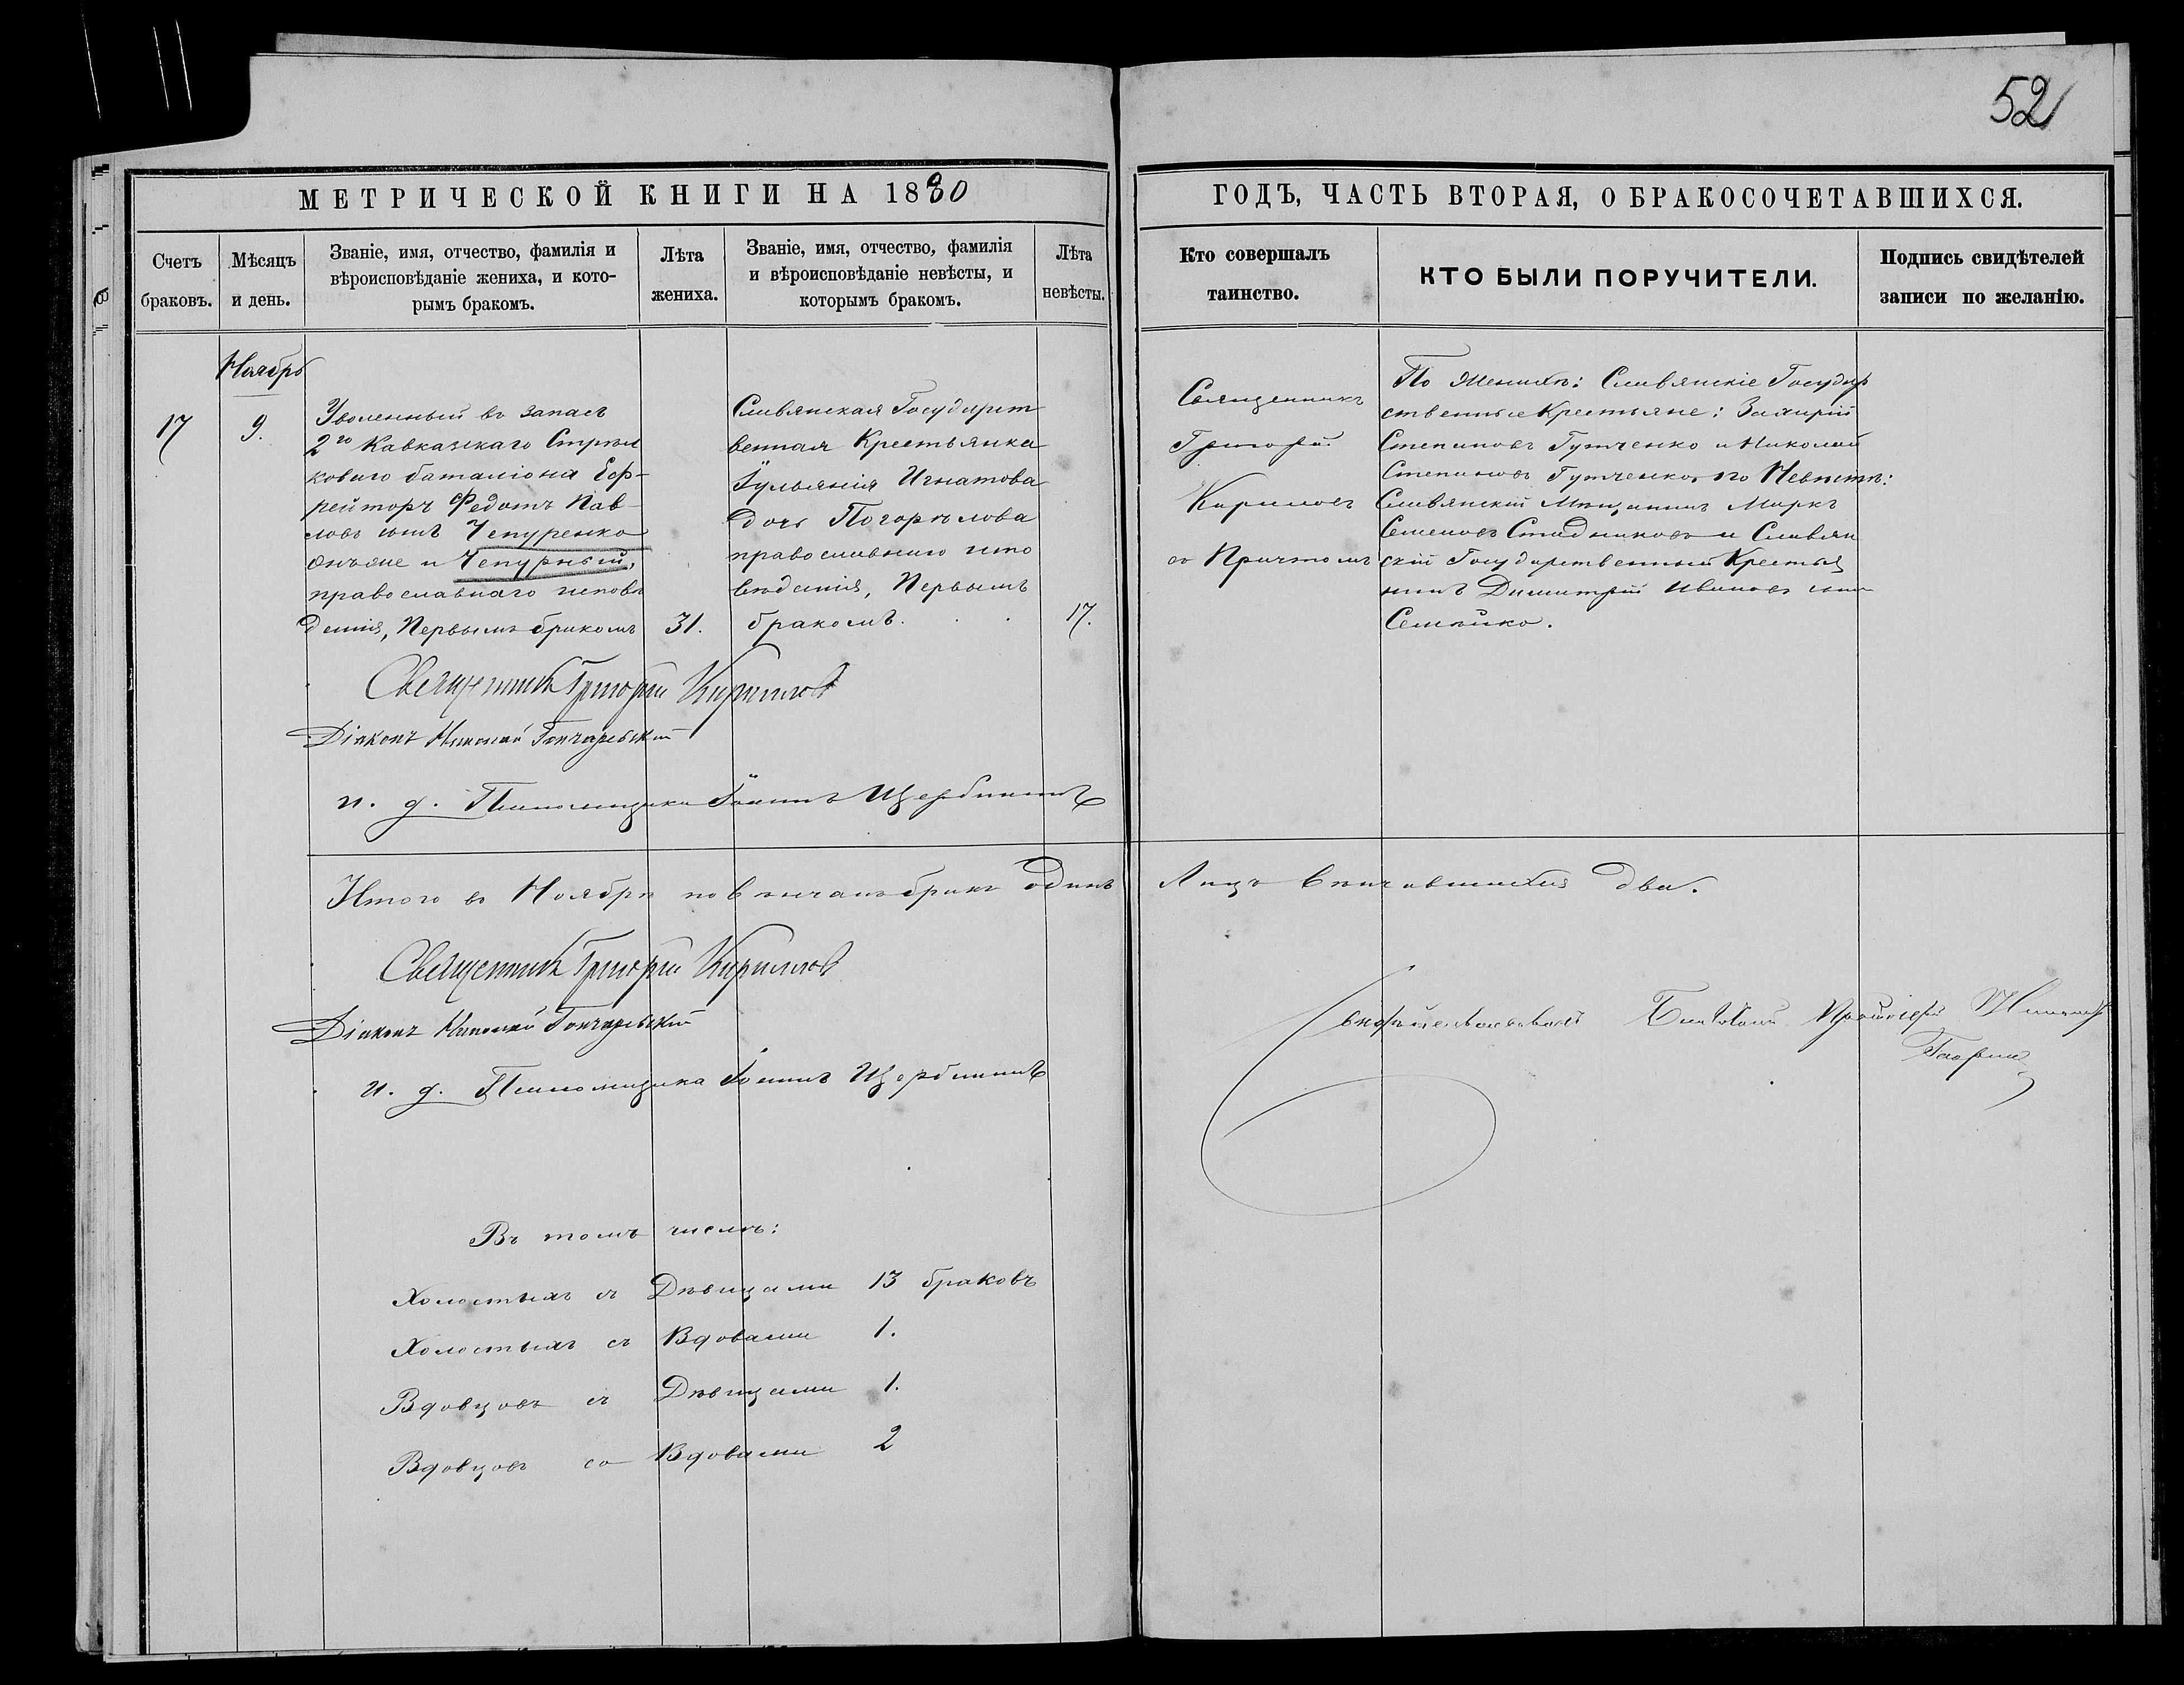 52
МЕТРИЧЕСКОЙ КНИГИ НА 1880
ГОДЪ, ЧАСТЬ ВТОРАЯ, О БРАКОСОЧЕТАВШИХСЯ.
Счетъ браковъ.
Мѣсяцъ и день.
Званіе, имя, отчество, фамилія и
вѣроисповѣданіе жениха, и кото-
рымъ бракомъ.
Лѣта жениха.
Званіе, имя, отчество, фамилія
и вѣроисповѣданіе невѣсты, и
которымъ бракомъ.
Лѣта невѣсты.
Кто совершалъ
таинство.
КТО БЫЛИ ПОРУЧИТЕЛИ.
Подпись свидѣтелей
записи по желанію.
Ноябрь
17
9.
Уволенный въ запасъ
2го Кавказскаго Стрѣл
коваго баталіона Еф-
рейторъ Федотъ Пав-
ловъ сынъ Чепуренко
онъ же и Чепурный,
православнаго исповѣ
денія, Первымъ бракомъ
31.
Славянская Государст
венная Крестьянка
Іульянія Игнатова
дочь Погорѣлова
православнаго испо
вѣденія, Первымъ
бракомъ.
17.
Священникъ
Григорій
Кириловъ
съ Причтомъ
По Женихѣ: Славянскіе Государ
ственные Крестьяне: Захарій
Степановъ Гутченко и Николай
Степановъ Гутченко, по Невѣстѣ:
Славянскій Мѣщанинъ Маркъ
Семеновъ Стадниковъ и Славян
скій Государственный Крестья
нинъ Димитрій Ивановъ сынъ
Семѣйко.
Священникъ Григорій Кириллов
Діаконъ Николай Гончаревскій
и. д. Псаломщика Іоаннъ Щербининъ
Итого въ Ноябрѣ повѣнчанъ бракъ одинъ
Лицъ вѣнчавшихся два.
Священникъ Григорій Кириллов
Діаконъ Николай Гончаревскій
и. д. Псаломщика Іоаннъ Щербининъ
Въ томъ числѣ:
Холостыхъ съ Дѣвицами 13 браковъ
Холостыхъ съ Вдовами 1.
Вдовцовъ съ Дѣвицами 1.
Вдовцовъ со Вдовами 2